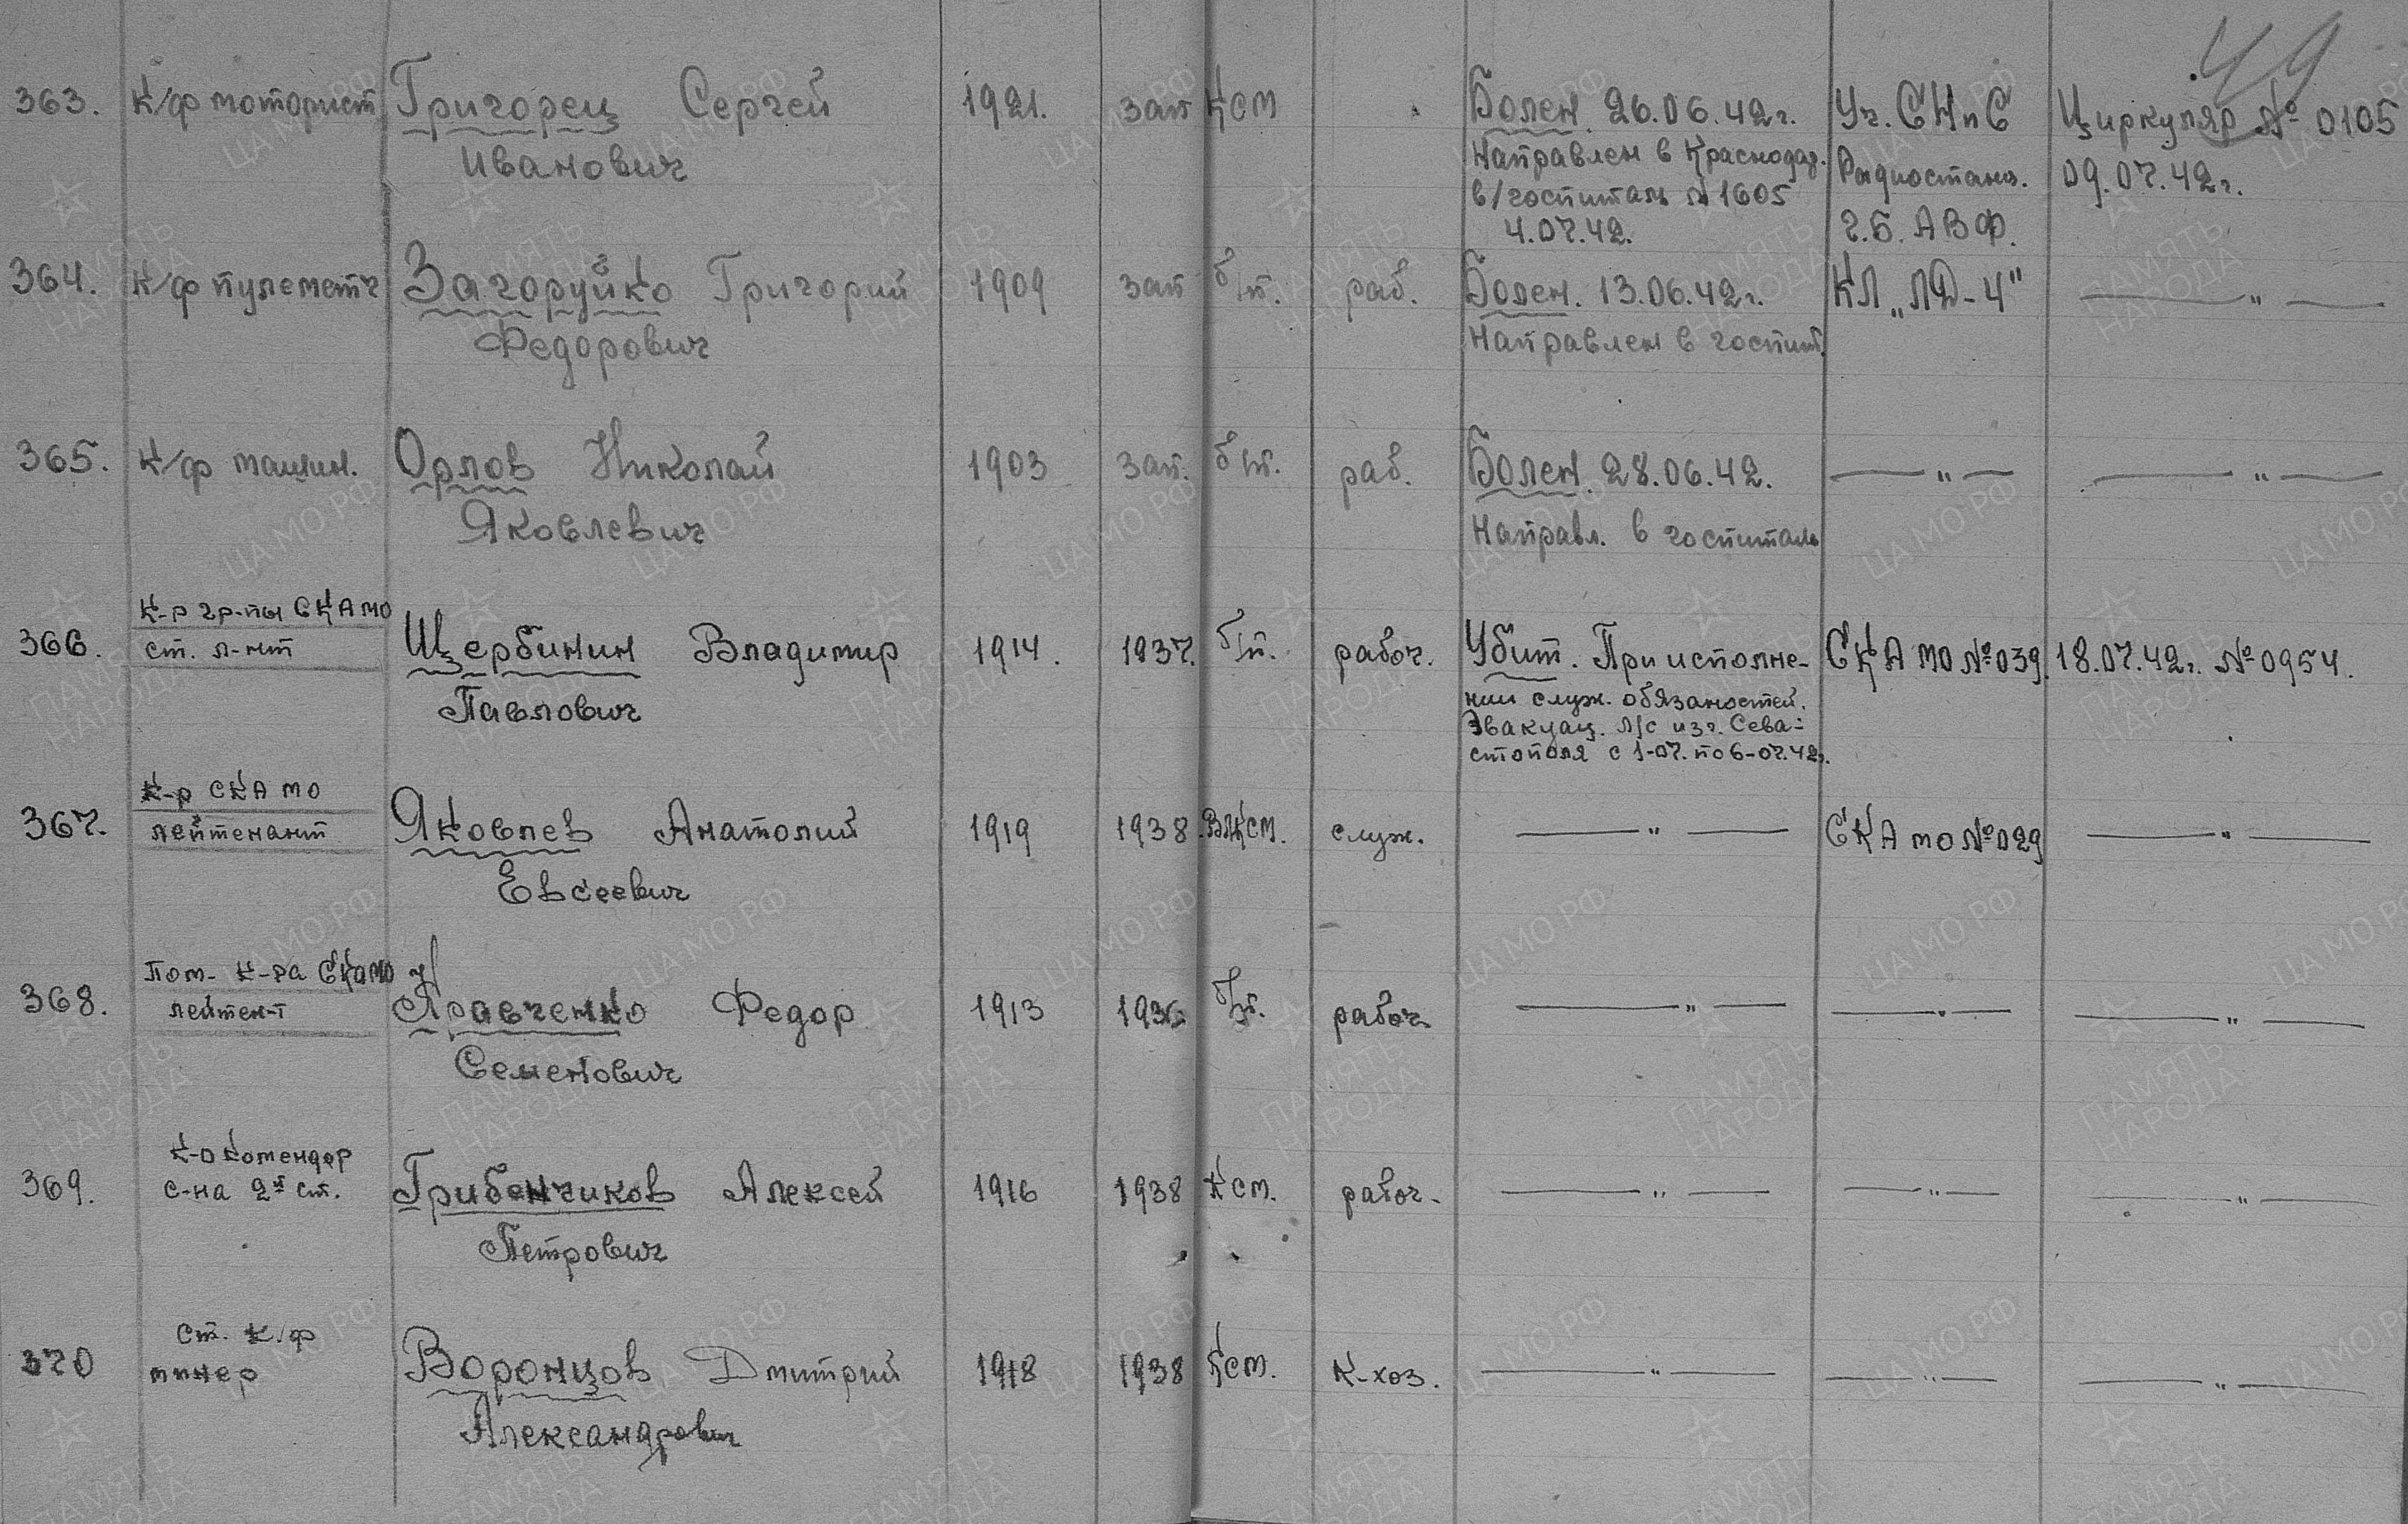 49
363. К/ф моторист Григорец Сергей 1921. зап КСМ Болен 26.06.42г. Уч. СНиС Циркуляр № 0105
Иванович Направлен в Краснодар. Радиостанц. 09.07.42г.
в/госпиталь №1605 г.Б. АВФ.
4.07.42.
364. К/ф пулеметч Загоруйко Григорий 1909 зап б/п. раб. Болен. 13.06.42г. КЛ „ЛД-4" — " —
Федорович Направлен в госпит.
365. К/ф машин. Орлов Николай 1903 зап. б/п. раб. Болен 28.06.42. — " — — " —
Яковлевич Направл. в госпиталь
К-р гр-пы СКА МО
366. ст. л-нт Щербинин Владимир 1914. 1937. б/п. рабоч. Убит. При исполне- СКА МО №039. 18.07.42г. №0954.
Павлович нии служ. обязаностей.
Эвакуац. л/с из г. Сева-
стополя с 1-07. по 6-07.42г.
К-р СКА МО
367. лейтенант Яковлев Анатолий 1919 1938. ВЛКСМ. служ. — " — СКА МО №029 — " —
Евсеевич
Пом- К-ра СКАМО
368. лейтен-т Кравченко Федор 1913 1936 б/п. рабоч. — " — — " — — " —
Семенович
К-о Комендор
369. с-на 2й ст. Грибенчиков Алексей 1916 1938 Ксм. рабоч. — " — — " — — " —
Петрович
ст. К/ф
370 минер Воронцов Дмитрий 1918 1938 Ксм. К-хоз. — " — — " — — " —
Александрович